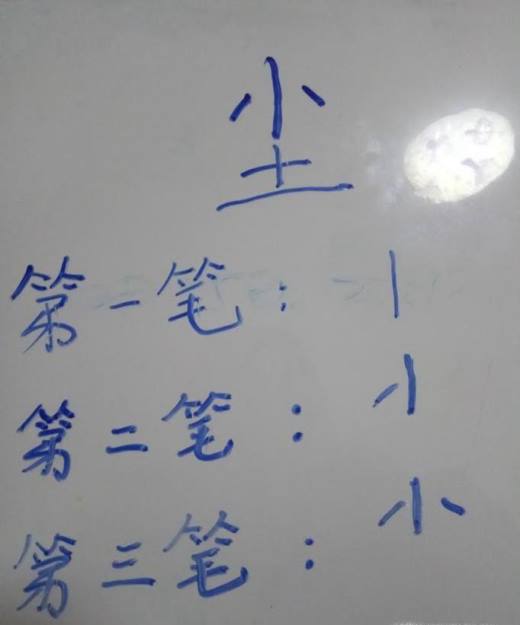 尘
第一笔：丨
第二笔：小
第三笔：小